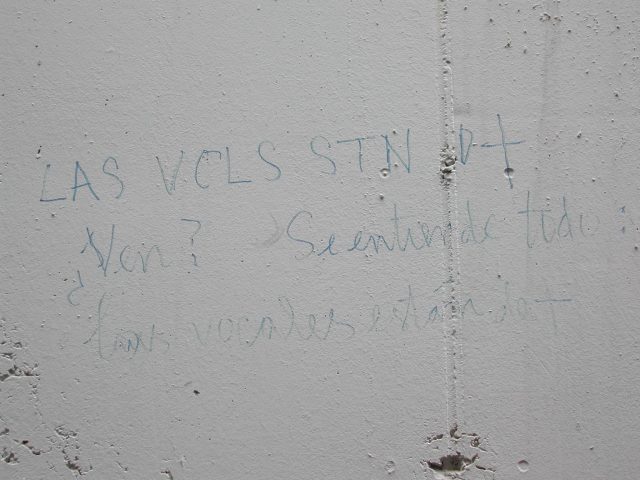 LAS VCLS STN D+
¿Ven? Se entiende todo:
Las vocales están de +